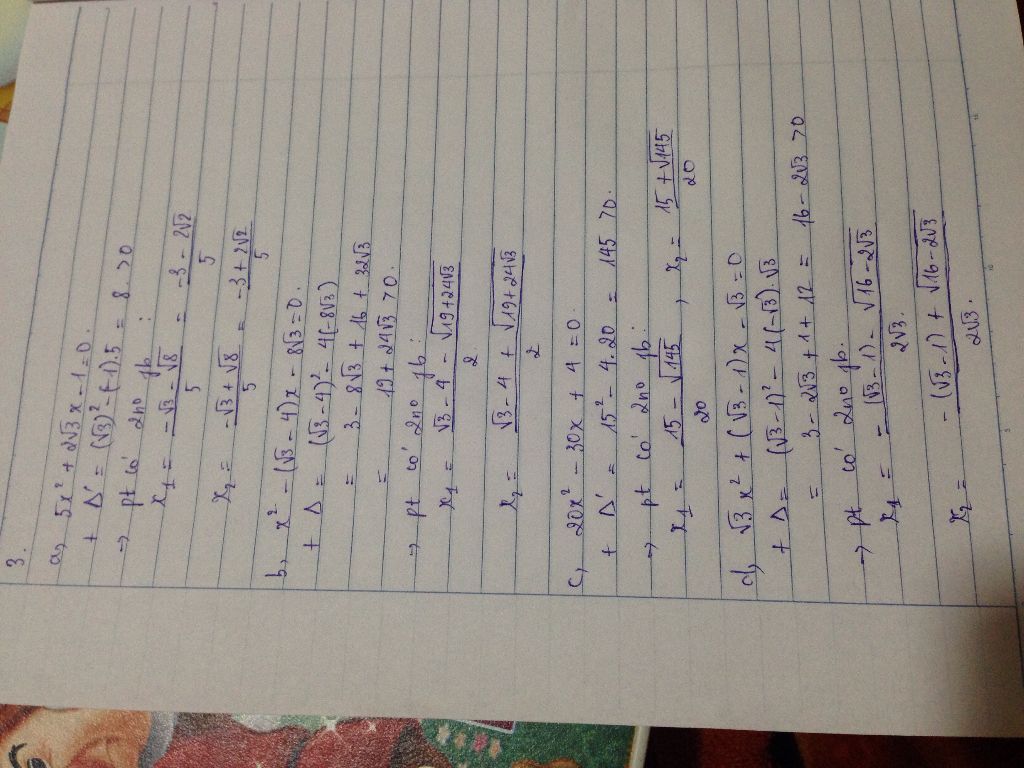 3.
a, 5x² + 2√3x - 1 = 0.
+ Δ' = (√3)² - (-1).5 = 8 > 0
→ pt có 2no pb:
x₁ = (-√3 - √8)/5 = (-3 - 2√2)/5
x₂ = (-√3 + √8)/5 = (-3 + 2√2)/5
b, x² - (√3 - 4)x - 8√3 = 0.
+ Δ = (√3 - 4)² - 4(-8√3)
= 3 - 8√3 + 16 + 32√3
= 19 + 24√3 > 0.
→ pt có 2no pb:
x₁ = (√3 - 4 - √(19 + 24√3))/2
x₂ = (√3 - 4 + √(19 + 24√3))/2
c, 20x² - 30x + 4 = 0.
+ Δ' = 15² - 4.20 = 145 > 0.
→ pt có 2no pb:
x₁ = (15 - √145)/20 , x₂ = (15 + √145)/20
d, √3x² + (√3 - 1)x - √3 = 0
+ Δ = (√3 - 1)² - 4(-√3).√3
= 3 - 2√3 + 1 + 12 = 16 - 2√3 > 0
→ pt có 2no pb.
x₁ = (-(√3 - 1) - √(16 - 2√3))/2√3.
x₂ = (-(√3 - 1) + √(16 - 2√3))/2√3.